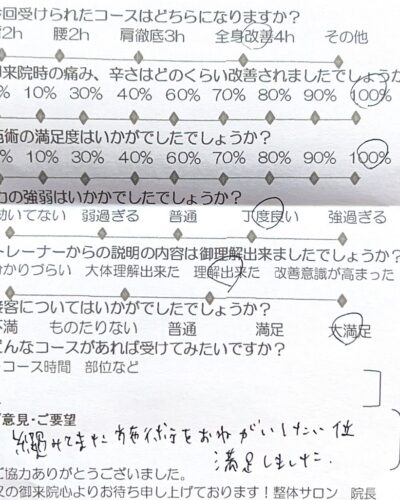 今回受けられたコースはどちらになりますか?
肩2h 腰2h 肩徹底3h 全身改善4h その他
御来院時の痛み、辛さはどのくらい改善されましたでしょうか
0% 10% 30% 40% 60% 70% 80% 90% 100%
施術の満足度はいかがでしたでしょうか?
0% 10% 30% 40% 60% 70% 80% 90% 100%
力の強弱はいかかでしたでしょうか?
効いてない 弱過ぎる 普通 丁度良い 強過ぎる
トレーナーからの説明の内容は御理解出来ましたでしょうか?
分かりづらい 大体理解出来た 理解出来た 改善意識が高まった
接客についてはいかがでしたでしょうか?
不満 ものたりない 普通 満足 大満足
どんなコースがあれば受けてみたいですか?
コース時間 部位など
ご意見・ご要望
また おねがいしたい位
満足しました.
ご協力ありがとうございました。
又の御来院心よりお待ち申し上げております!整体サロン 院長